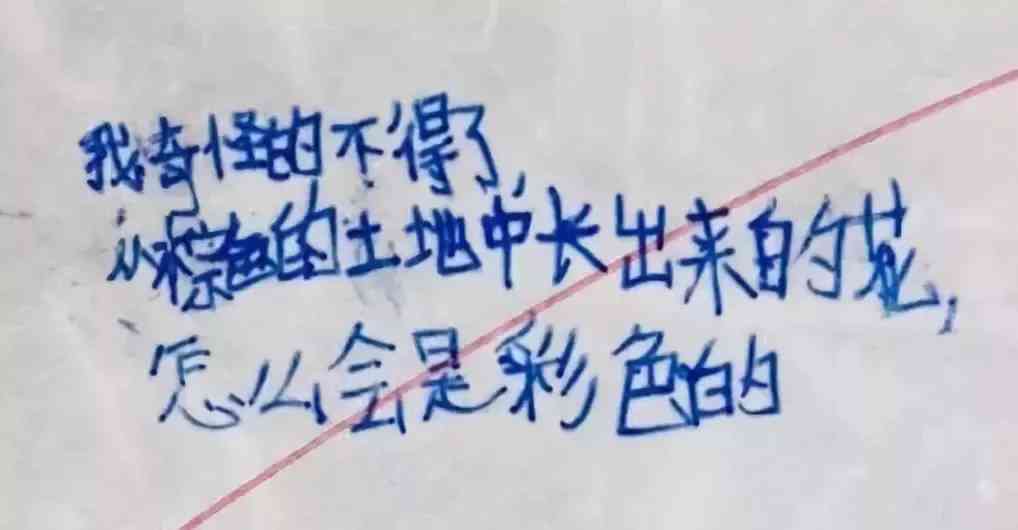 我奇怪的不得了,
从棕色的土地中长出来的花,
怎么会是彩色的